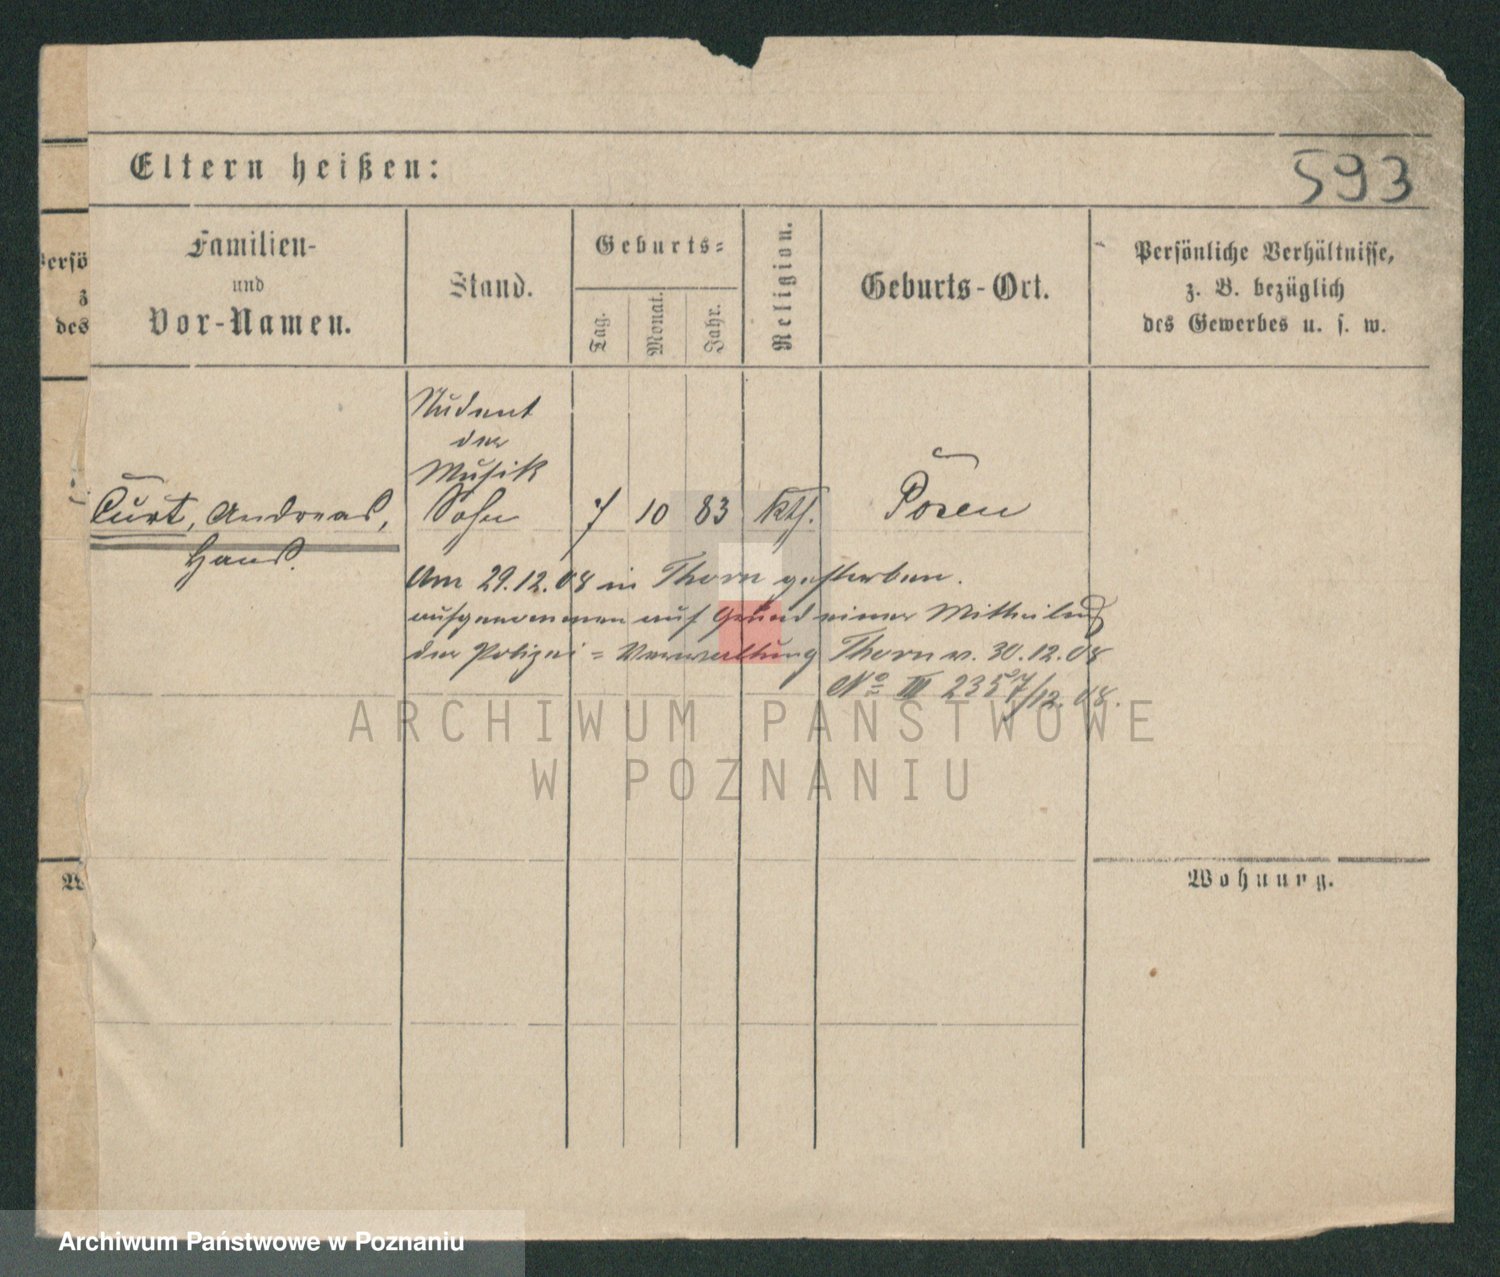 Eltern heißen:
593
Persö
z
des
Familien-
und
Vor-Namen.
Stand.
Geburts-
Tag.
Monat.
Jahr.
Religion.
Geburts-Ort.
Persönliche Verhältnisse,
z. B. bezüglich
des Gewerbes u. s. w.
Student
der
Musik
Curt, Andreas, Sohn 7 10 83 kth. Posen
Hans.
Am 29.12.08 in Thorn gestorben.
aufgenommen auf Grund einer Mittheilung
der Polizei-Verwaltung Thorn v. 30.12.08
No III 2357/12.08.
ARCHIWUM PAŃSTWOWE
W POZNANIU
W
Wohnung.
Archiwum Państwowe w Poznaniu